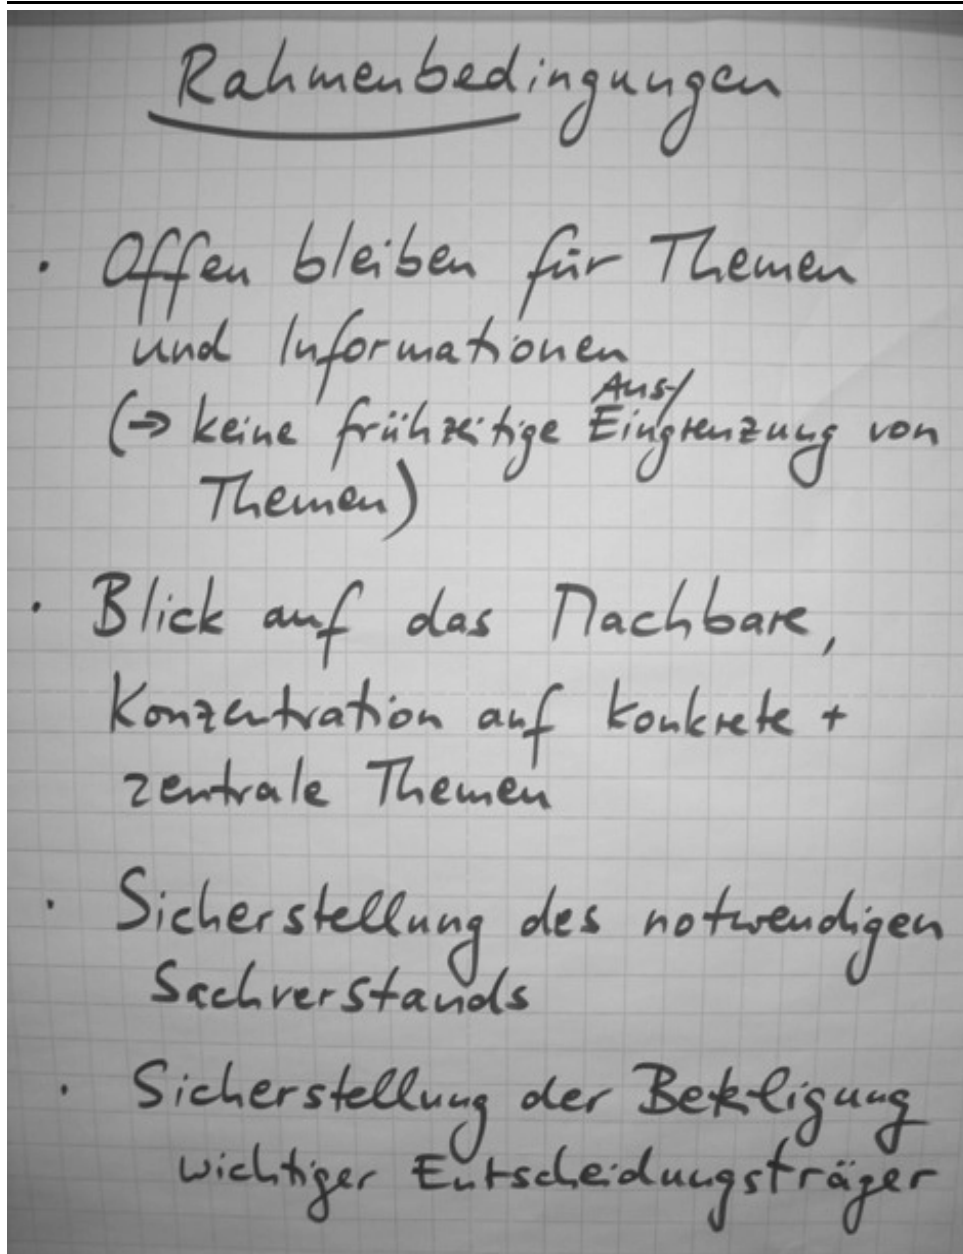 Rahmenbedingungen
· Offen bleiben für Themen
und Informationen
(⇒ keine frühzeitige Aus-/Eingrenzung von
Themen)
· Blick auf das Machbare,
Konzentration auf konkrete +
zentrale Themen
· Sicherstellung des notwendigen
Sachverstands
· Sicherstellung der Beteiligung
wichtiger Entscheidungsträger